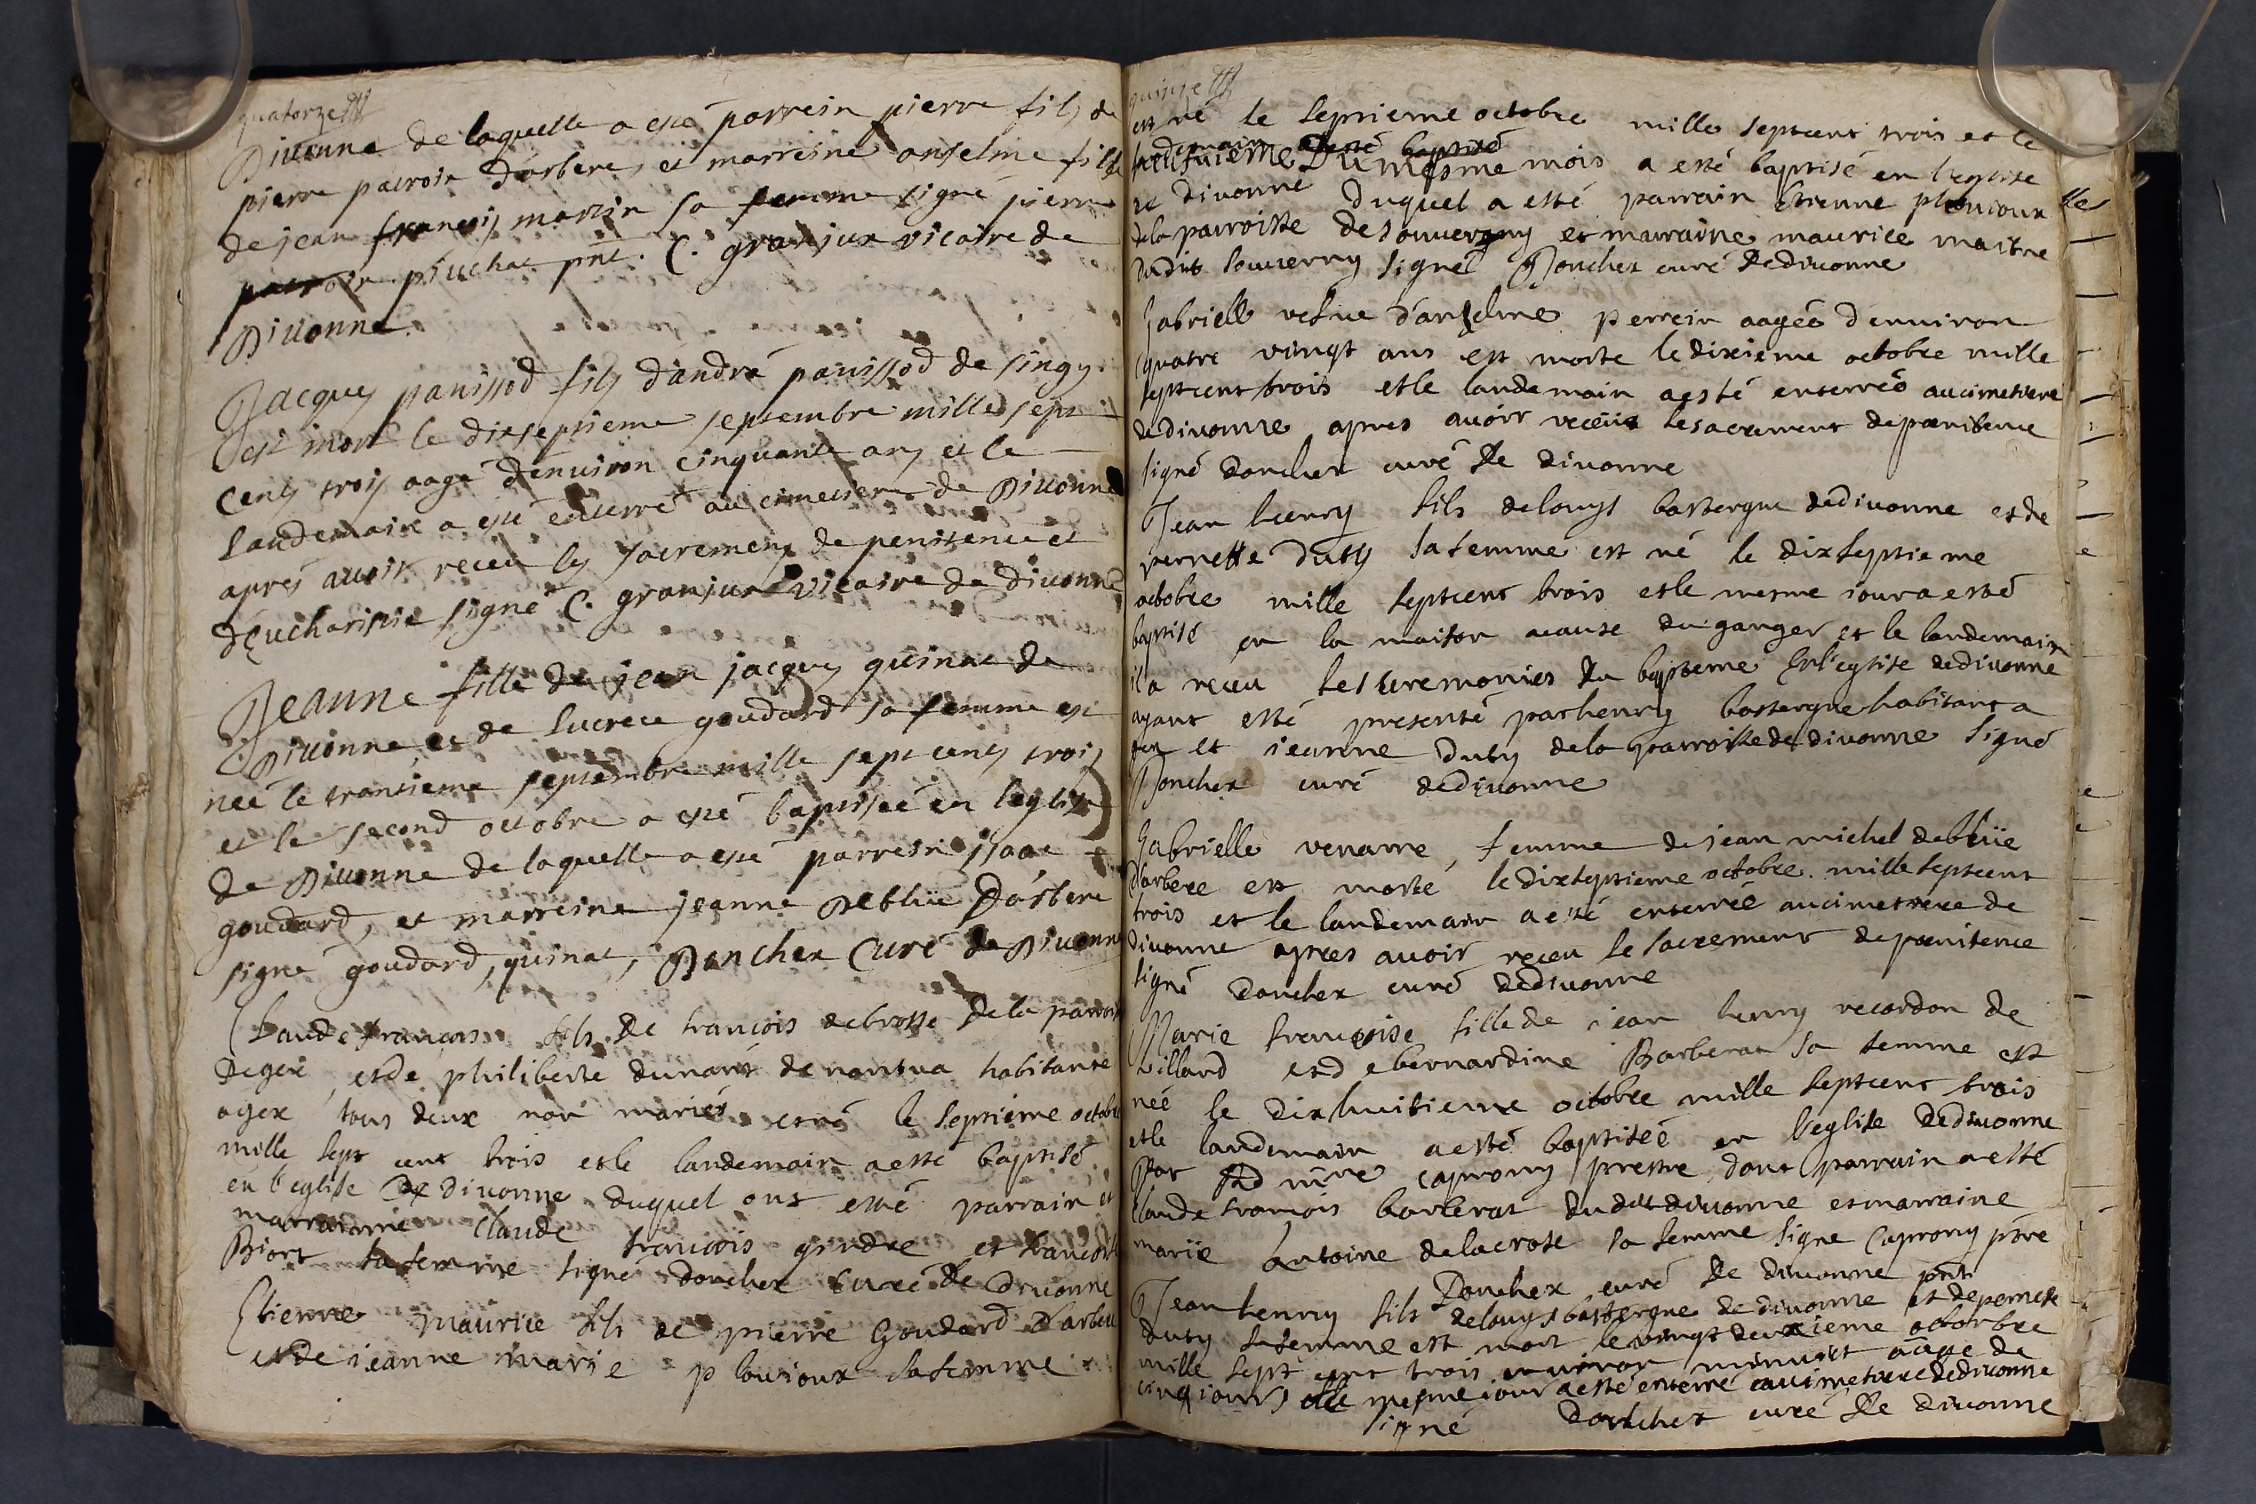 quatorze
Divonne de laquelle a esté parrein pierre fils de
pierre pacroix d'arbere, et marreine anselme fille
de jean françois martin sa femme signé pierre
pacroix piuchat pnt. C. granjux vicaire de
Divonne.
Jacques panissod fils d'andré panissod de singy
est mort le dixseptieme septembre mille sept
cents trois aagé d'environ cinquante ans et le
landemain a esté enterré au cimetiere de Divonne
aprés avoir receu les sacremens de penitence et
d'Eucharistie signé C. granjux vicaire de divonne
Jeanne fille de jean jacques quinne de
Divonne et de lucrece goudard sa femme est
neé le trantieme septembre mille sept cents trois
et le second octobre a esté baptiseé en l'eglise
de Divonne de laquelle a esté parrein isaac
goudard, et marreine jeanne Deblüe D'arbere
signé goudard, quinat, Doncher Curé de Divonne
Claude francois fils de francois debrosse de la parroisse
degex et de philiberte dunant de nantua habitante
agex tous deux non mariés est né le septiéme octobre
mille sept cent trois et le landemain a esté baptisé
en l'eglise de divonne duquel ont esté parrain et
marrainne Claude francois gindre et francoise
Biort sa femme signé doncher curé de divonne
Etienne maurice fils de pierre Goudard d'arbere
et de ieanne marie plovioux sa femme
quinze
est né le septieme octobre mille septcent trois et le
landemain a esté baptisé
huitiéme du mesme mois a esté baptisé en l'eglise
de divonne duquel a esté parrain Etienne plovioux
de la parroisse de souvergny et marraine maurice maitre
dudit souverny signé Doncher curé de divonne
Gabrielle vefue d'anselme perrein aageé d'environ
quatre vingt ans est morte le dixieme octobre mille
septcent trois et le landemain a esté enterreé au cimetiere
de divonne apres avoir receüe le sacrement de pœnitence
signé doncher curé de divonne
Jean henry fils de louys bastergue de divonne et de
pernette duty sa femme est né le dixseptieme
octobre mille septcent trois et le mesme iour a esté
baptisé en la maison acause du danger et le landemain
il a receu les ceremonies du bapteme en l'eglise de divonne
ayant esté presenté par henry bastergue habitant a
gex et ieanne duty de la parroisse de divonne signé
Doncher curé de divonne
Gabrielle venarre, femme de jean michel deblüe
d'arbere est morte le dixseptieme octobre mille septcent
trois et le landemain a esté enterreé au cimetiere de
divonne apres avoir receu le sacrement de pœnitence
signé doncher curé de divonne
Marie francoise fille de iean henry recordon de
villard et de bernardine Barberat sa femme est
neé le dixhuitieme octobre mille septcent trois
et le landemain a esté baptiseé en l'eglise de divonne
Par caprony prestre, dont parrain a esté
Claude francois barberat dudit divonne et marraine
mariie Antoine delacrose sa femme signé Caprony ptre
Doncher curé de divonne pnt
Jean henry fils de louys bastergue de divonne et de pernete
duty sa femme est mort le vingt deuxieme octobre
mille sept cent trois environ minuit aagé de
cinq iours et le mesme iour a esté enterré au cimetiere de divonne
signé doncher curé de divonne